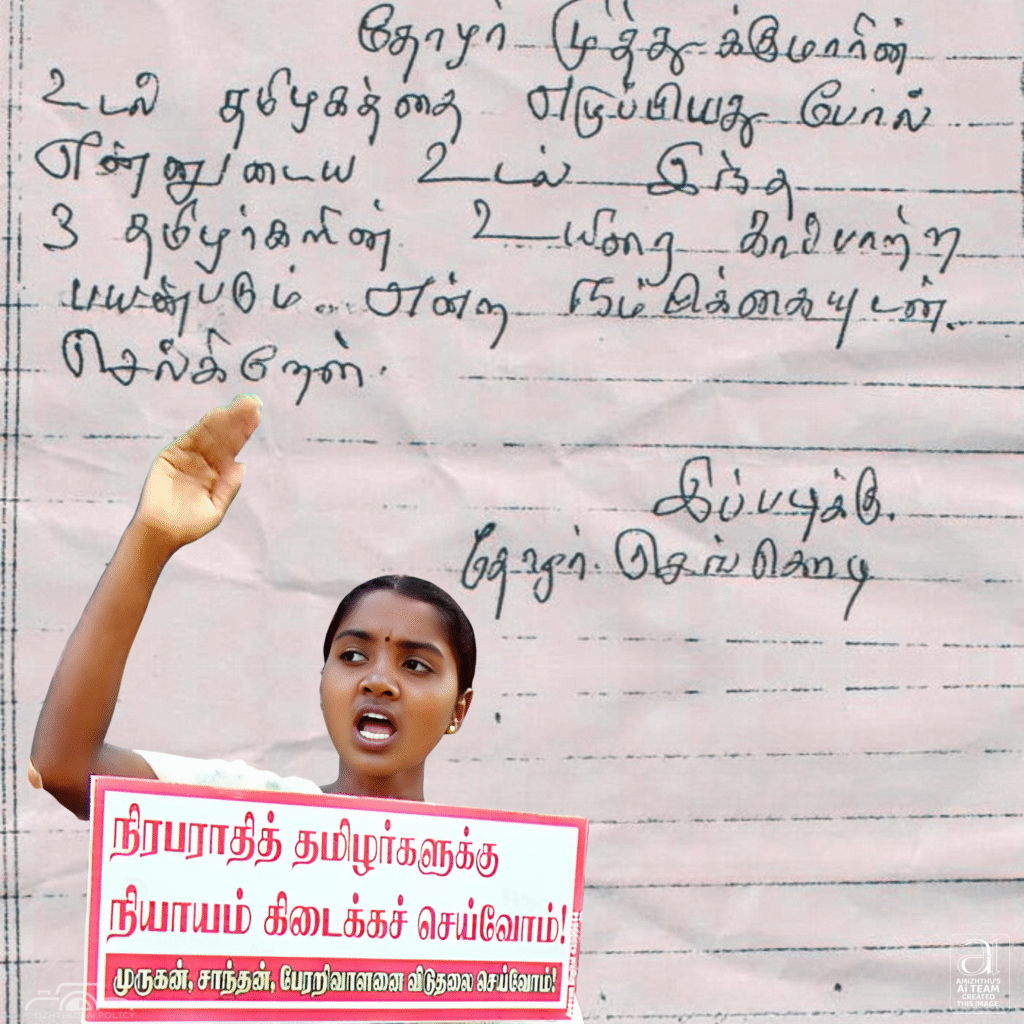 தோழர் முத்துக்குமாரின்
உடல் தமிழகத்தை எழுப்பியது போல்
என்னுடைய உடல் இந்த
3 தமிழர்களின் உயிரை காப்பாற்ற
பயன்படும் என்ற நம்பிக்கையுடன்.
செல்கிறேன்.
இப்படிக்கு.
தோழர். செங்கொடி
நிரபராதித் தமிழர்களுக்கு
நியாயம் கிடைக்கச் செய்வோம்!
முருகன், சாந்தன், பேரறிவாளனை விடுதலை செய்வோம்!
ai
AMIZHTHU'S
AI TEAM
CREATED
THIS IMAGE
POLICY